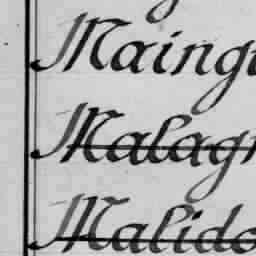 Maingu
Malagr
Malido